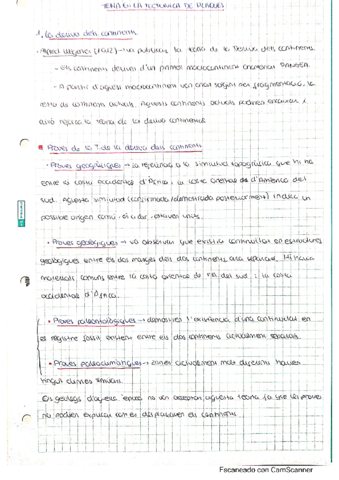 TEMA 6: LA TECTÒNICA DE PLAQUES
1. La deriva dels continents
Alfred Wegener (1912) → va publicar la teoria de la deriva dels continents
- Els continents deriven d'un primer macrocontinent anomenat PANGEA.
- A partir d'aquest macrocontinent van anar sorgint per fragmentació, la
resta de continents actuals. Aquests continents actuals podrien encaixar i
això reforça la teoria de la deriva continental.
Proves de la T. de la deriva dels continents
· Proves geogràfiques → fa referència a la similitud topogràfica que hi ha
entre la costa occidental d'Àfrica i la costa oriental d'Amèrica del
sud. Aquesta similitud (confirmada/demostrada posteriorment) indica un
possible origen comú, és a dir, estaven units.
· Proves geològiques → va observar que existia continuïtat en estructures
geològiques entre els dos marges dels dos continents ara separats. Hi havia
materials comuns entre la costa oriental de l'A. del sud i la costa
occidental d'Àfrica.
· Proves paleontològiques → demostren l'existència d'una continuïtat en
el registre fòssil existent entre els dos continents actualment separats.
· Proves paleoclimàtiques → zones actualment molt diferents havien
tingut climes similars.
Els geòlegs d'aquella època no van acceptar aquesta teoria ja que les proves
no podien explicar com es desplaçaven els continents.
Escaneado con CamScanner